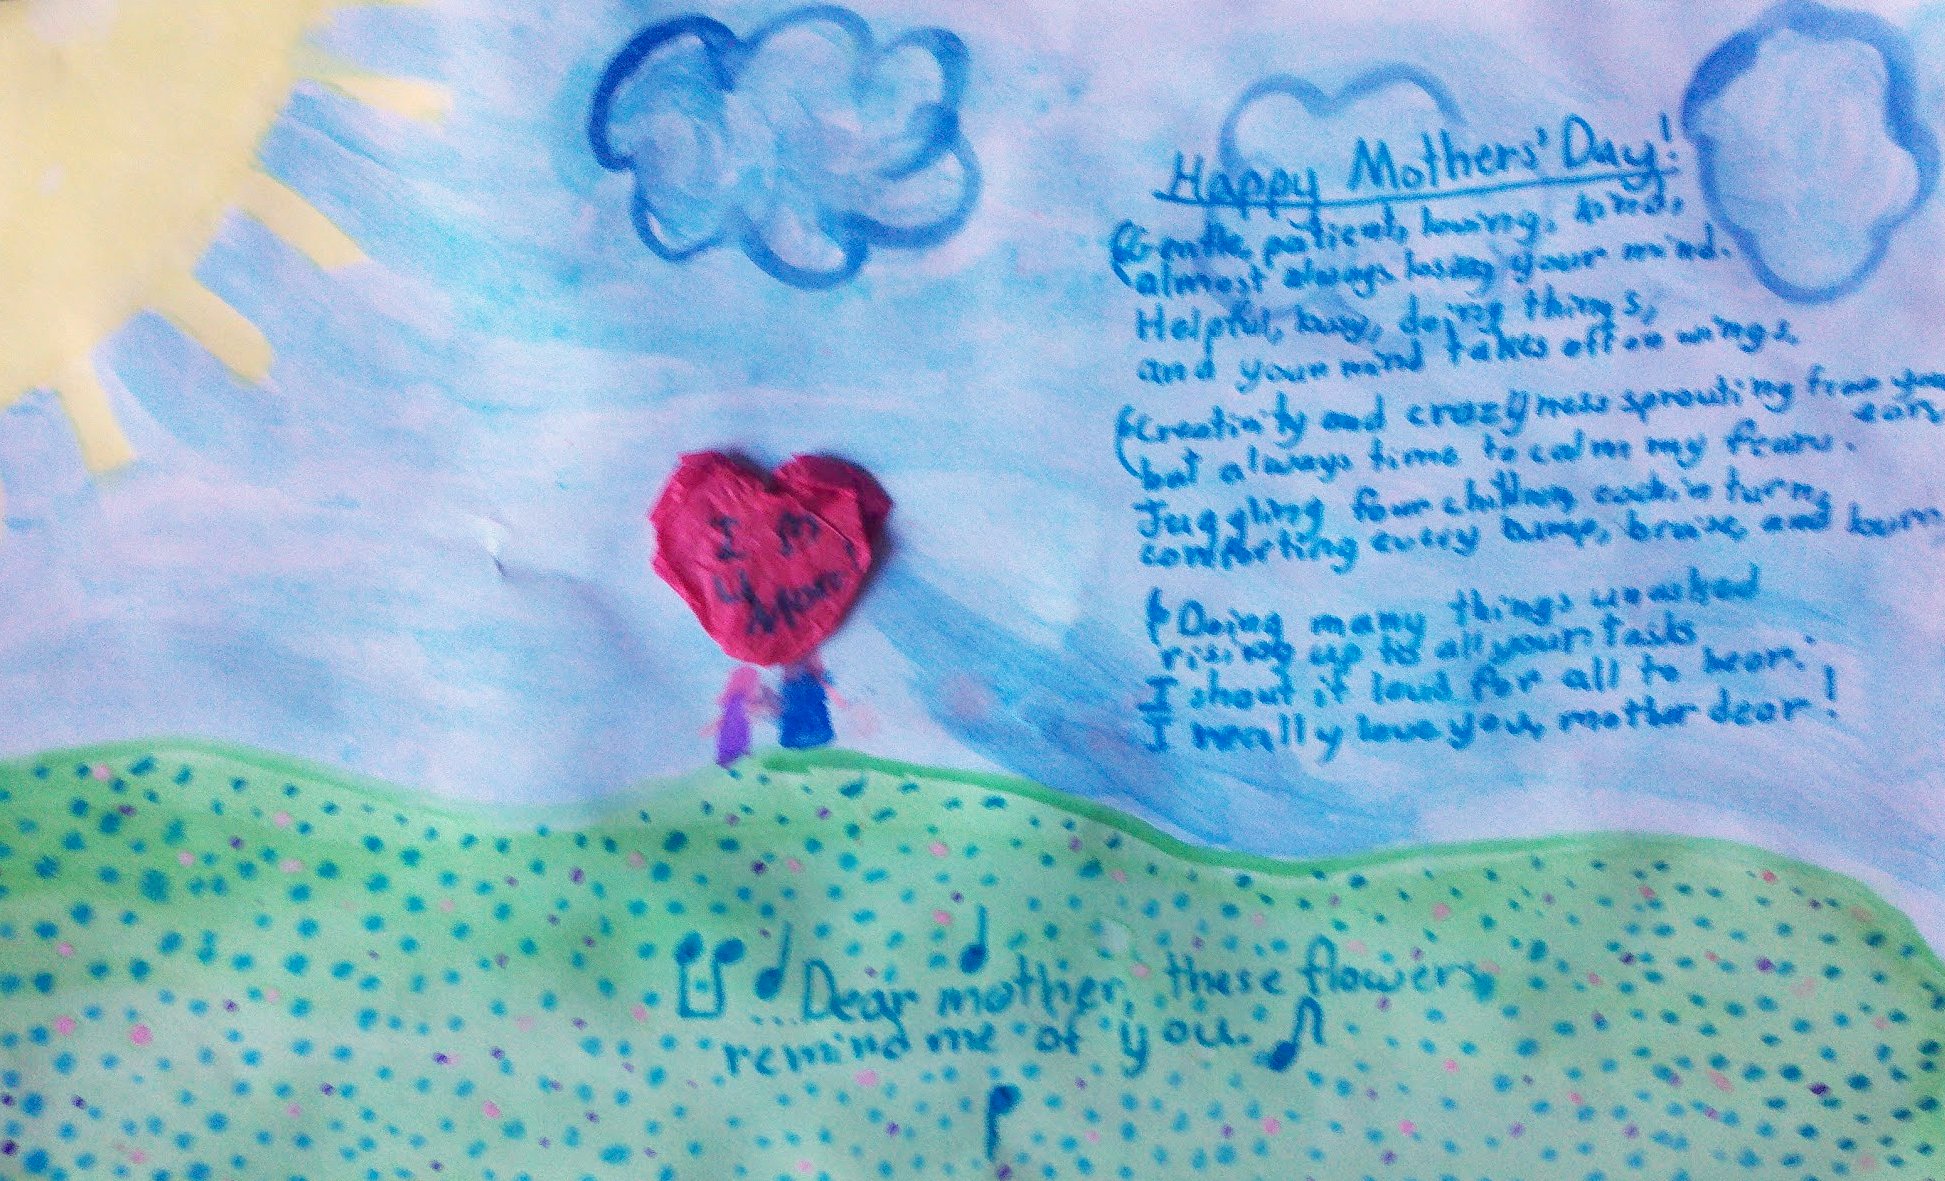 Happy Mothers' Day!
Gentle, patient, loving, kind,
almost always losing your mind.
Helpful, busy, doing things,
and your mind takes off on wings.
Creativity and crazyness sprouting from your
ears
but always time to calm my fears.
Juggling four children, each in turn,
comforting every bump, bruise, and burn
Doing many things unasked
rising up to all your tasks
I shout it loud for all to hear.
I really love you, mother dear!
I
Mom
...Dear mother, these flowers
remind me of you.